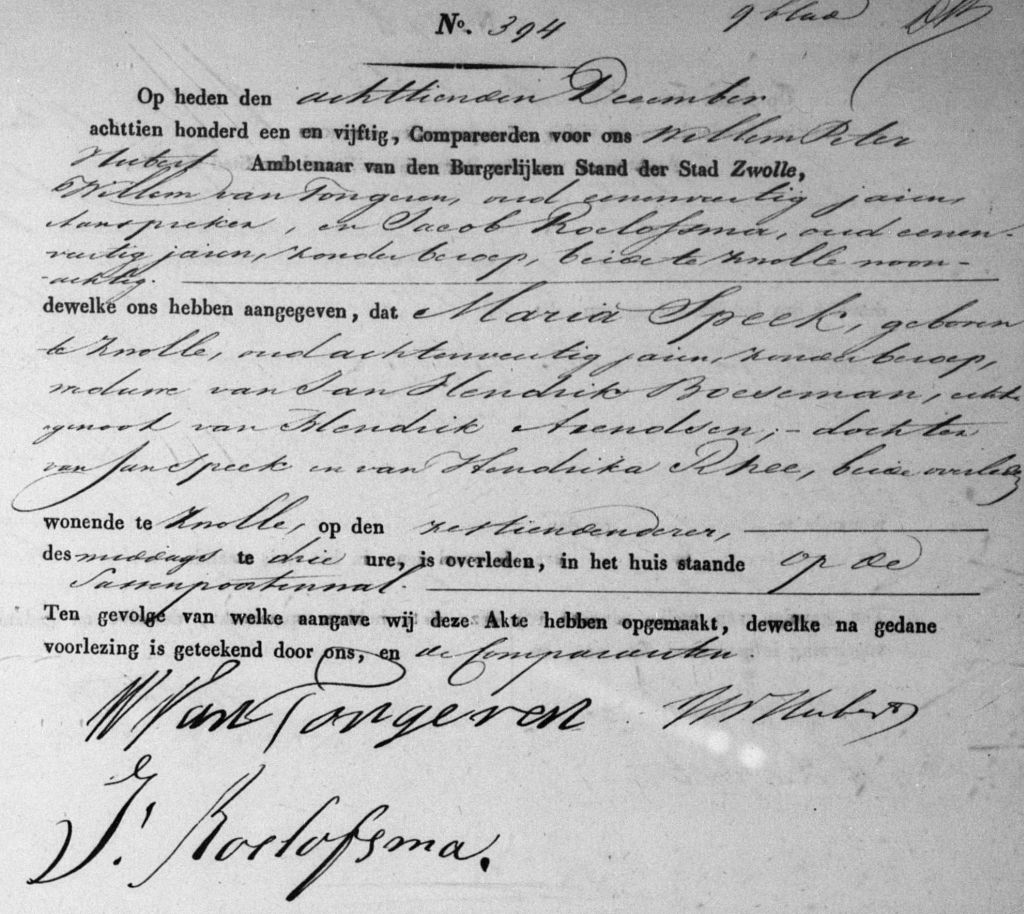 No. 394
9 blad
Op heden den achttienden December
achttien honderd een en vijftig, Compareerden voor ons Willem Peter
Hubert Ambtenaar van den Burgerlijken Stand der Stad Zwolle,
Willem van Tongeren, oud eenenveertig jaren,
Aanspreker, en Jacob Roelofsma, oud eenen-
veertig jaren, zonder beroep, beide te Zwolle woon-
achtig.
dewelke ons hebben aangegeven, dat Maria Speek, geboren
te Zwolle, oud achtenveertig jaren, zonder beroep,
weduwe van Jan Hendrik Boeseman, echt-
genoot van Hendrik Arendsen; - dochter
van Jan Speek en van Hendrika Rhee, beide overleden
wonende te Zwolle, op den zestienden dezer,
des middags te drie ure, is overleden, in het huis staande op de
Sassenpoortenwal.
Ten gevolge van welke aangave wij deze Akte hebben opgemaakt, dewelke na gedane
voorlezing is geteekend door ons, en de Comparanten.
W Van Tongeren W P Hubert
J. Roelofsma.